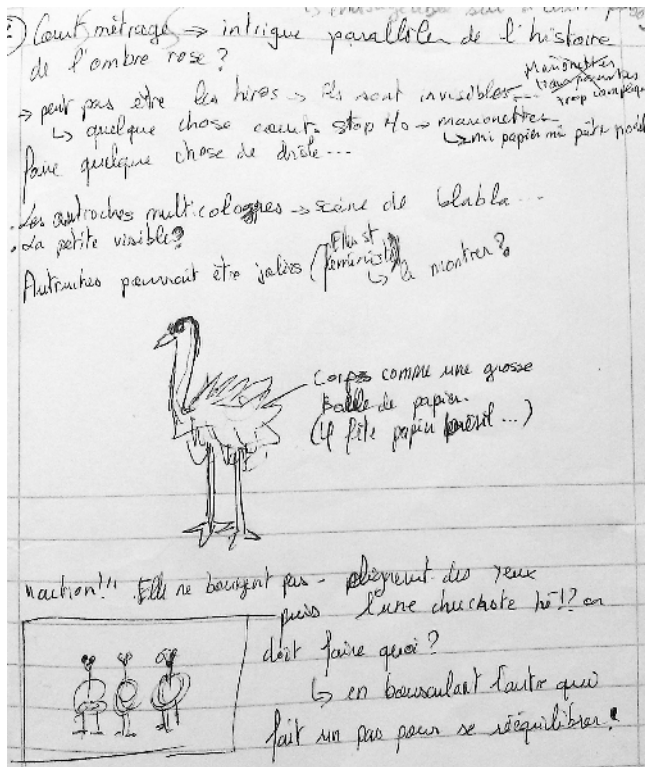 Court métrage → intrigue parallèle de l'histoire
de l'ombre rose ?
→ peut pas être les héros → ils sont invisibles...
Marionettes
transparentes
trop compliqué
↳ quelque chose court. stop Mo → marionettes
↳ mi papier mi pâte
Faire quelque chose de drôle...
. Les autruches multicolores → scène de blabla...
. La petite visible ?
Autruches pourrait être jolies (
↳ la montrer ?
Corps comme une grosse
Balle de papier.
papier
"action!!" Elle ne bougent pas - clignent des yeux
puis l'une chuchote hé !? on
doit faire quoi ?
↳ en bousculant l'autre qui
fait un pas pour se rééquilibrer.